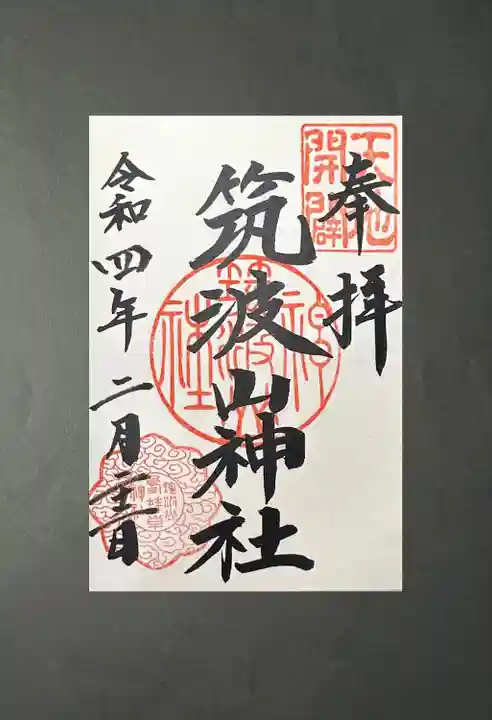 奉拝
天地開闢
筑波山神社
筑波山神社
令和四年二月